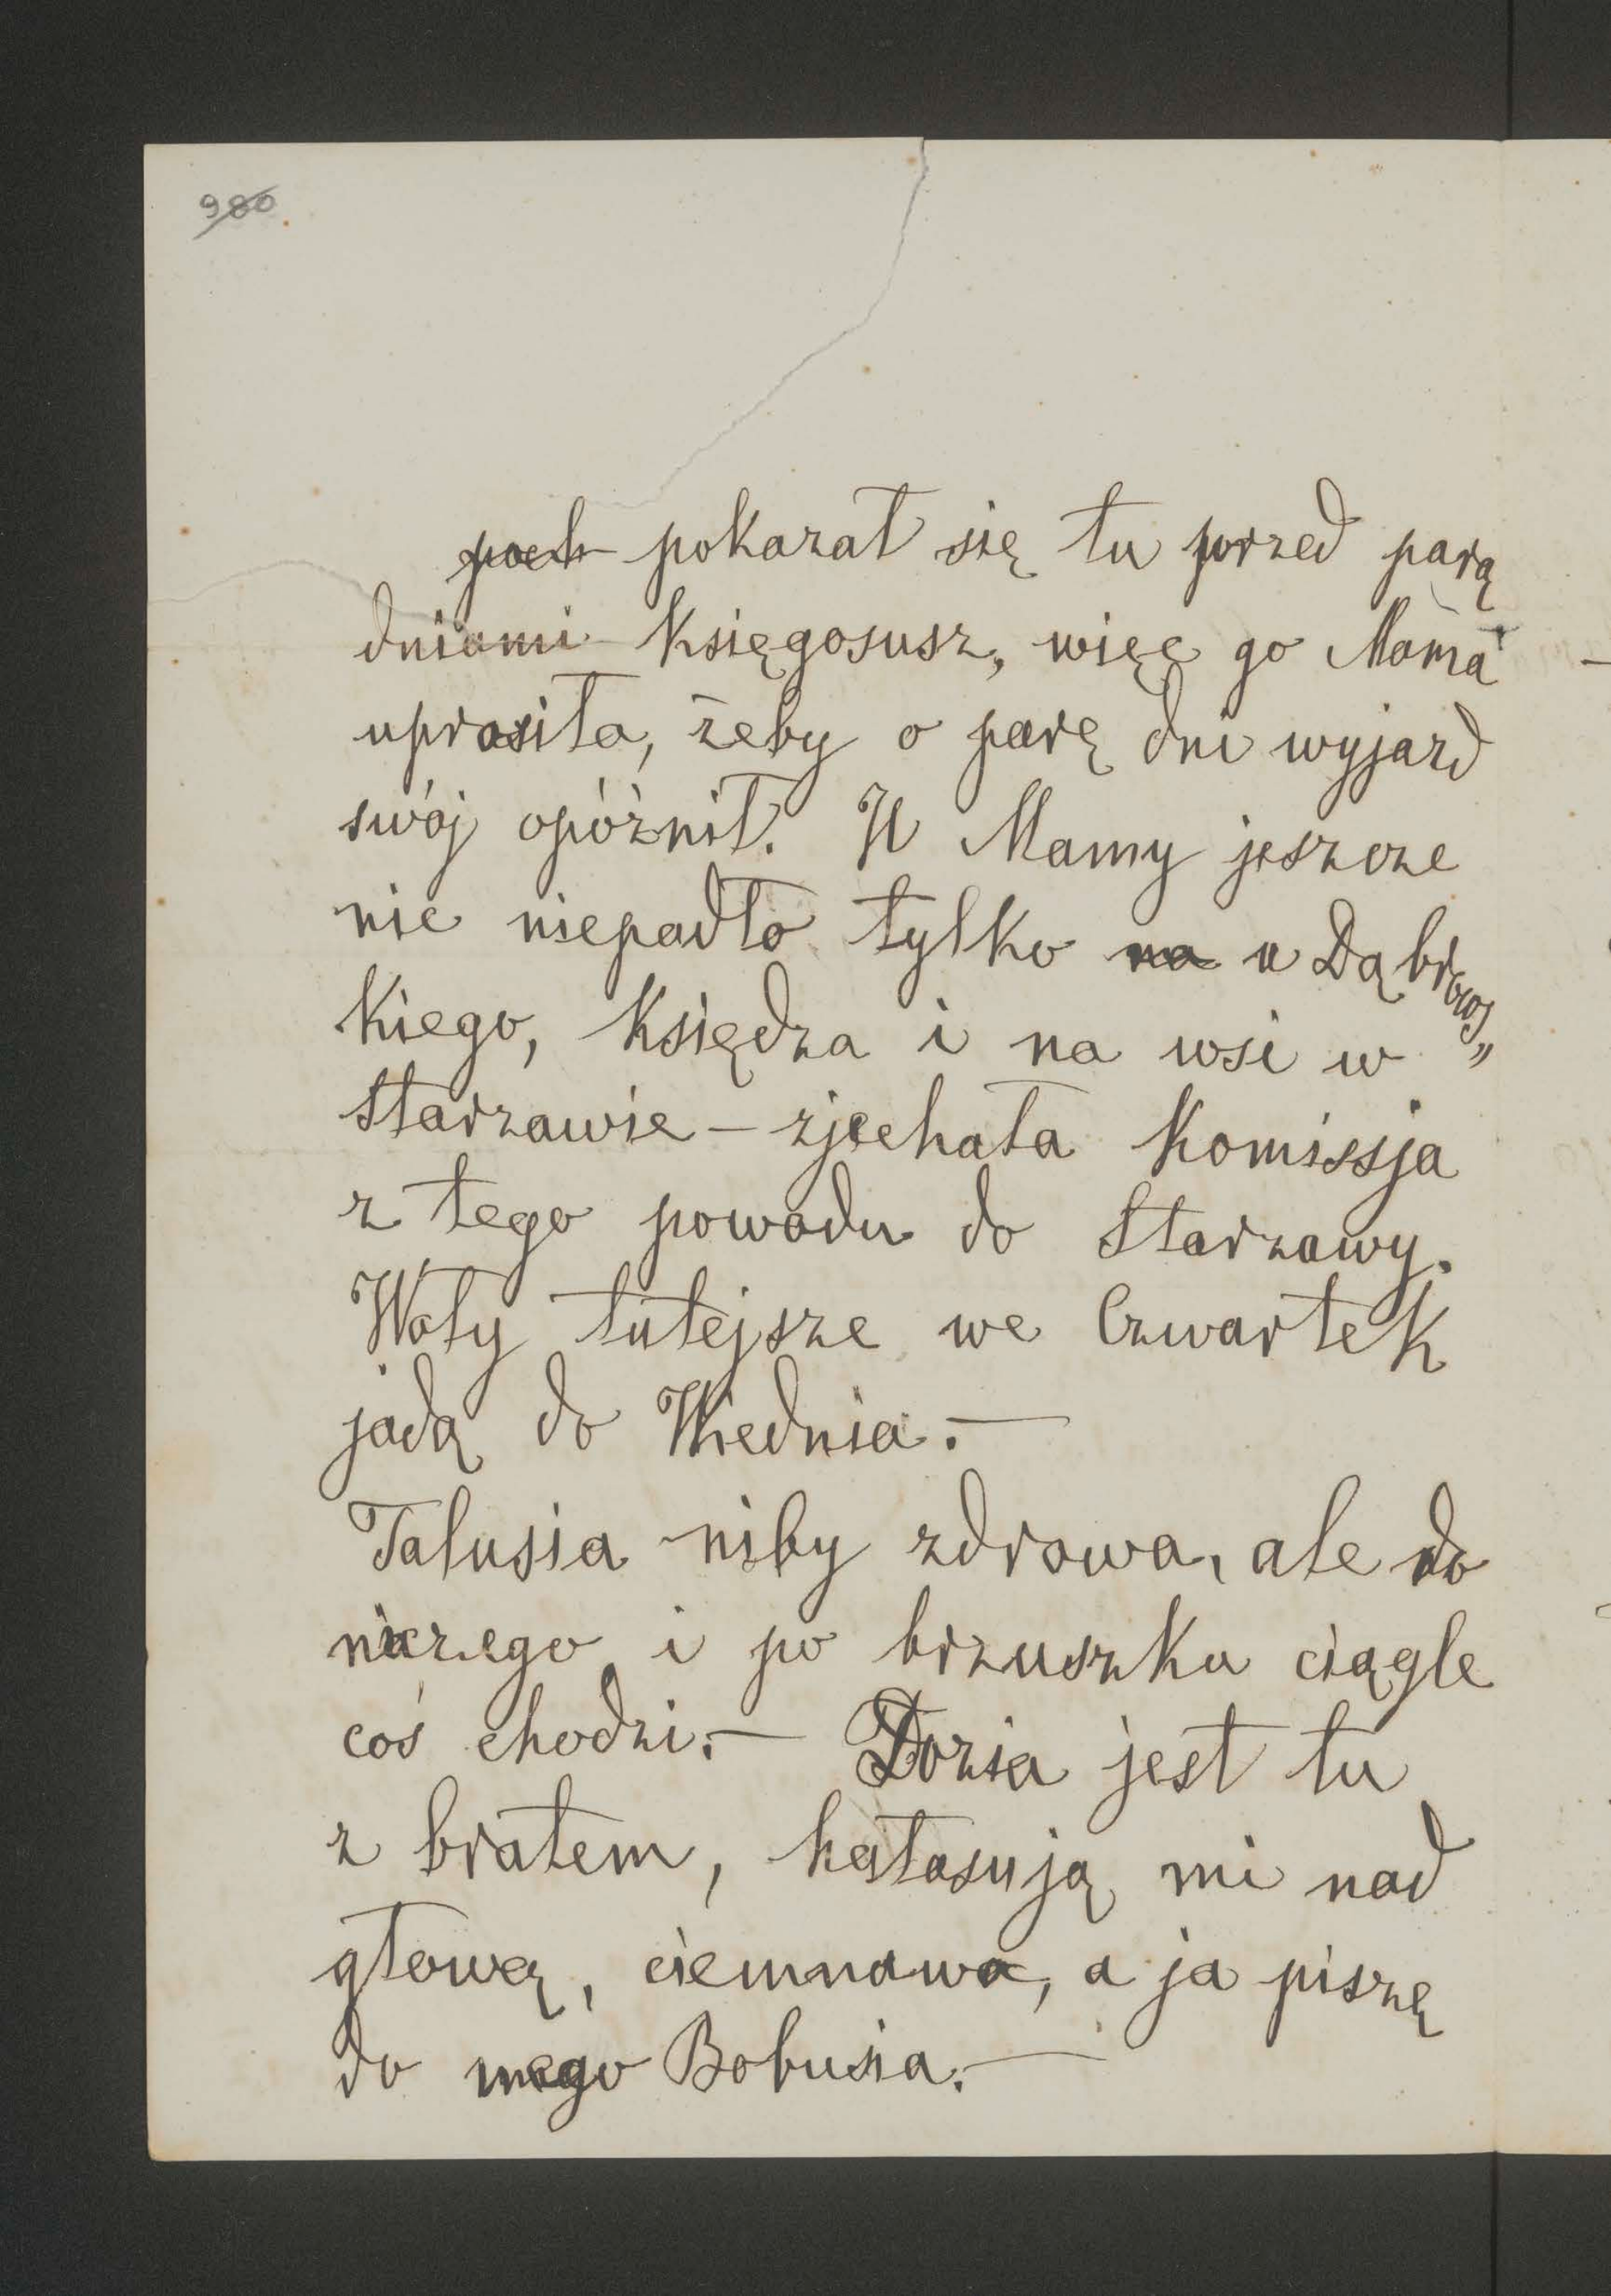 980
poch pokazał się tu przed parą
dniami Księgosusz, więc go Mama
uprosiła, żeby o parę dni wyjazd
swój opóźnił. U Mamy jeszcze
nic niepadło tylko na u Dąbrows„
kiego, Księdza i na wsi w
Starzawie – zjechała Komissja
z tego powodu do Starzawy.
Woły tutejsze we Czwartek
jadą do Wiednia. –
Talusia niby zdrowa, ale do
niczego i po brzuszku ciągle
coś chodzi. – Dozia jest tu
z bratem, hałasują mi nad
głową, ciemnawo, a ja piszę
do mego Bobusia. –